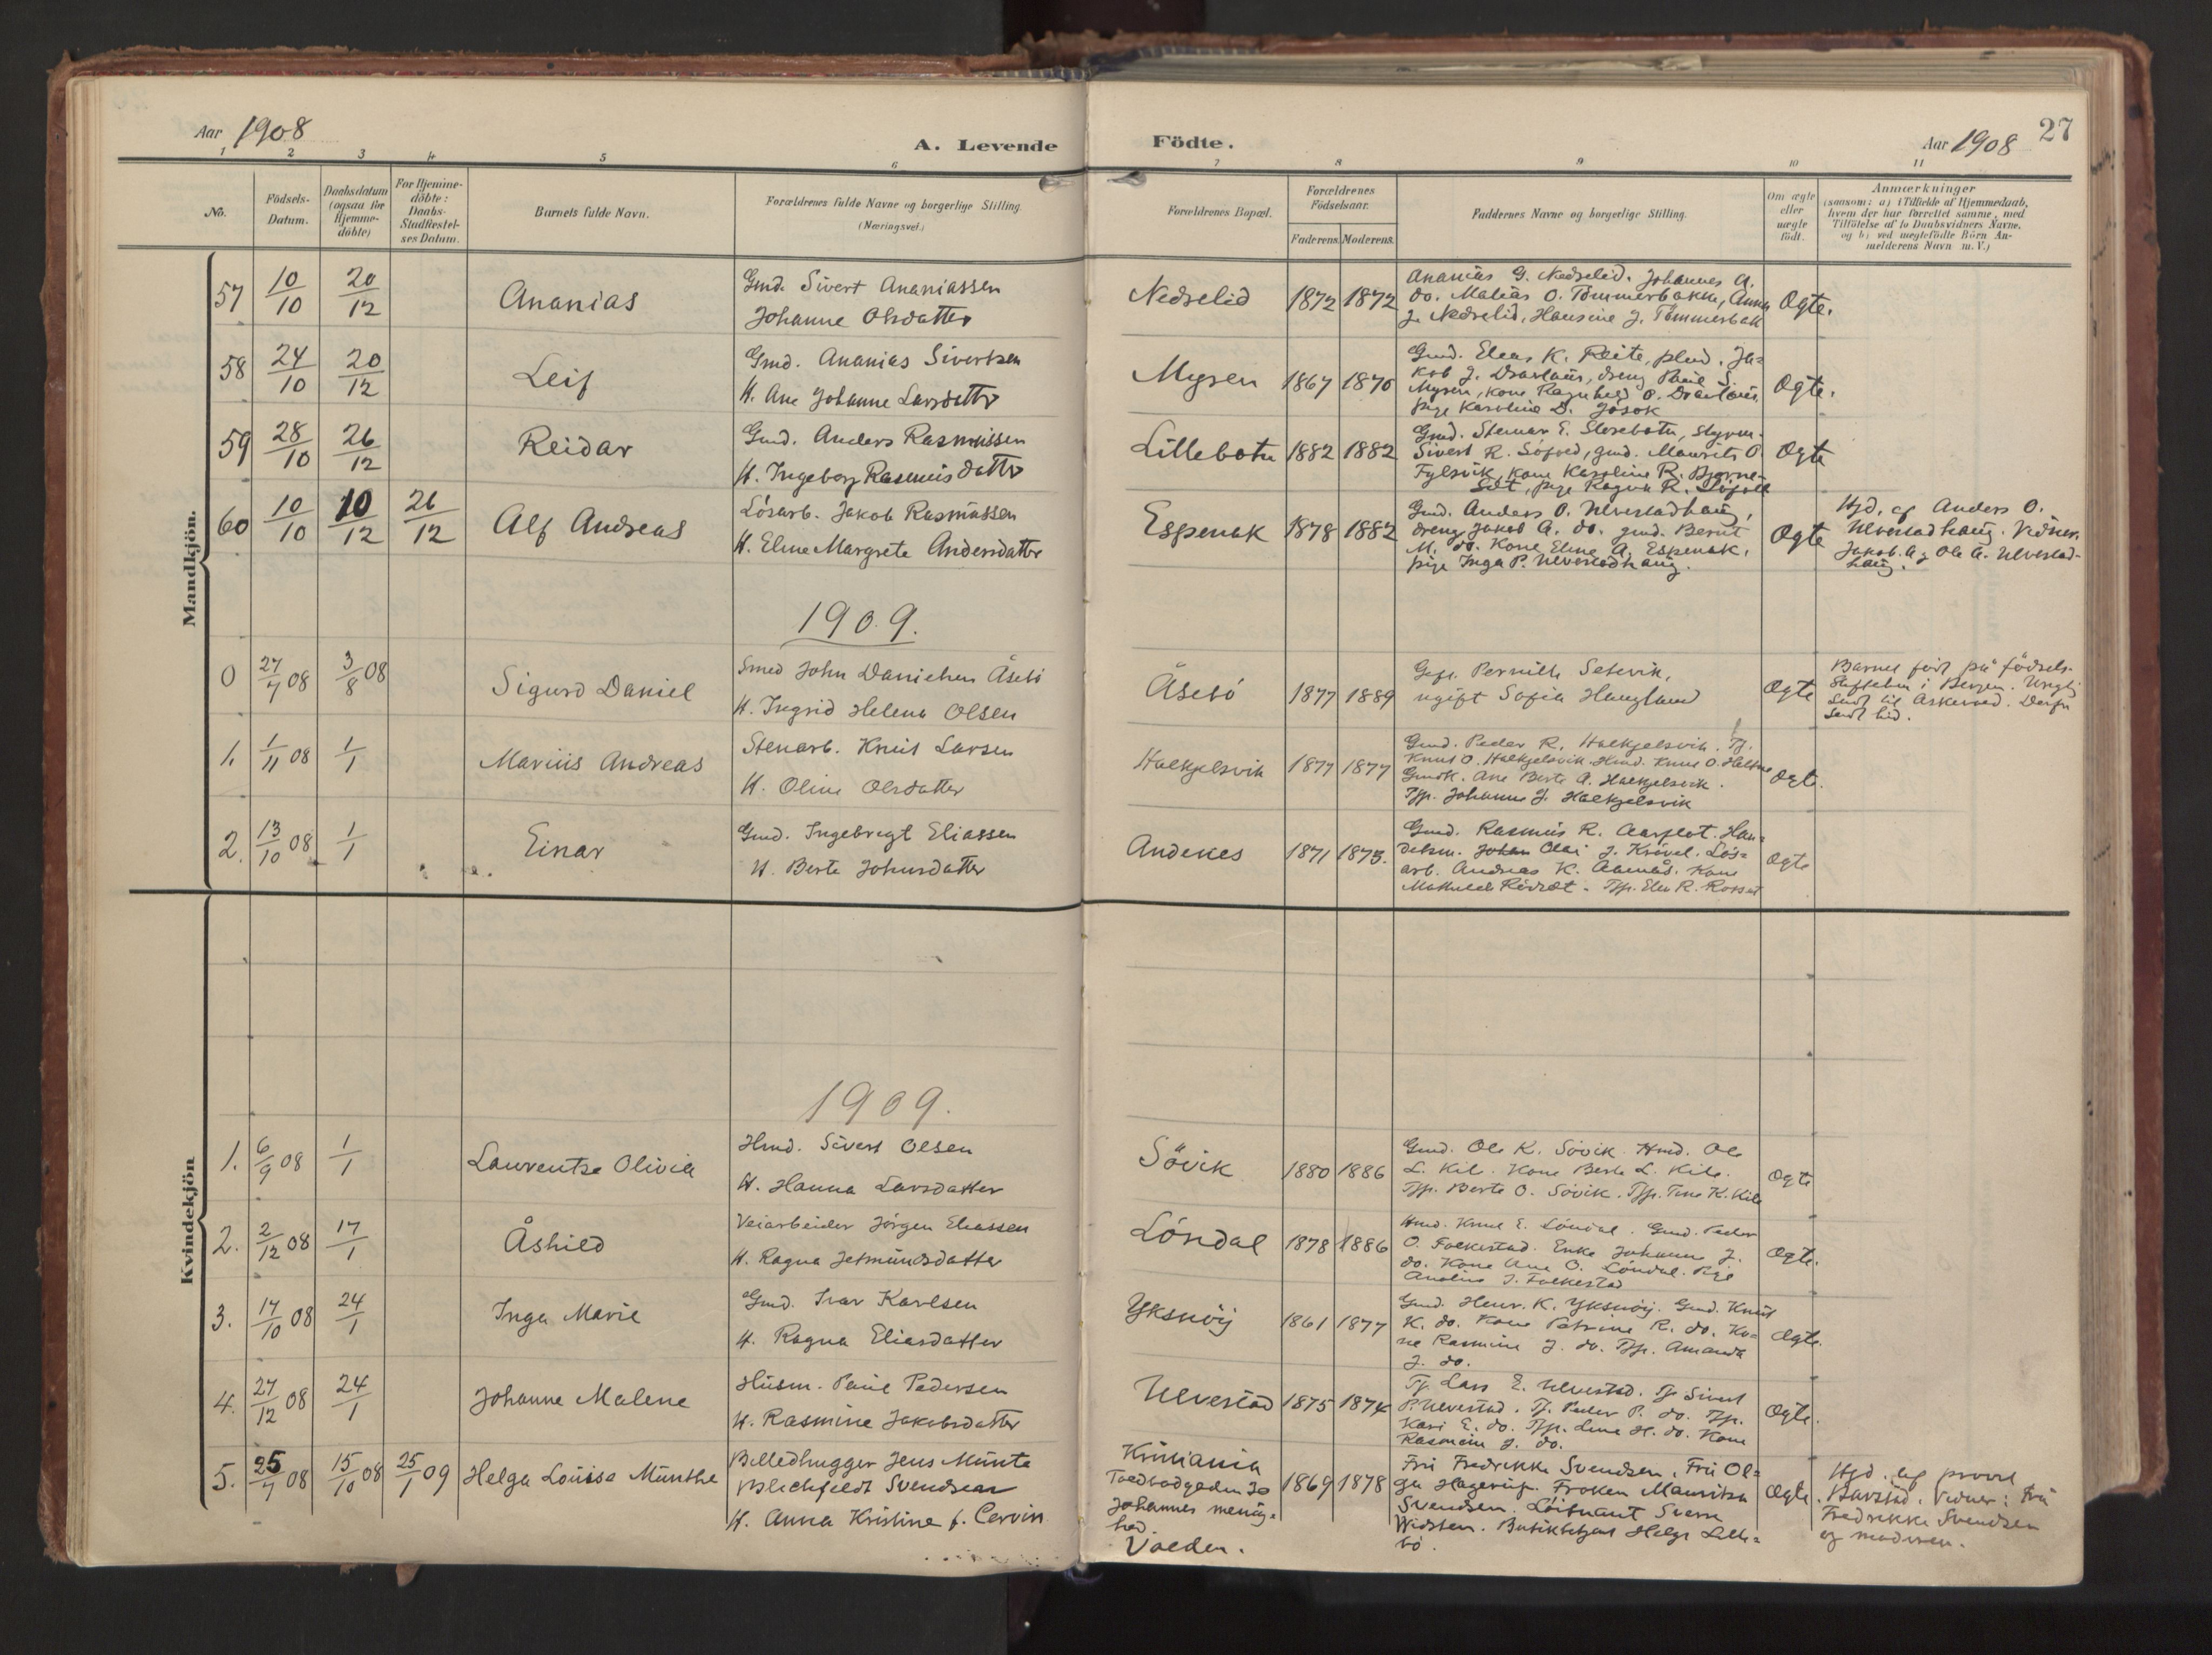 Aar 1908
A. Levende Födte.
Aar 1908 27
1 2 3 4 5 6 7 8 9 10 11
No.
Födsels-
Datum.
Daabsdatum
(ogsaa for
Hjemme-
döbte)
For Hjemme-
döbte:
Daabs-
Stadfæstel-
ses Datum.
Barnets fulde Navn.
Forældrenes fulde Navne og borgerlige Stilling
(Næringsvei.)
Forældrenes Bopæl.
Forældrenes
Födselsaar.
Faderens. Moderens.
Faddernes Navne og borgerlige Stilling.
Om ægte
eller
uægte
født.
Anmærkninger
(saasom: a) i Tilfælde af Hjemmedaab,
hvem der har forrettet samme, med
Tilföielse af to Daabsvidners Navne,
og b) ved uægtefödte Börn An-
melderens Navn m. V.)
Mandkjön.
57 10/10 20/12 Ananias
Gmd. Sivert Ananiassen
Johanne Olsdatter
Nedrelid 1872 1872
Ananias G. Nedrelid. Johannes A.
do. Matias O. Tömmerbakke, Anna
J. Nedrelid, Hansine J. Tömmerbak
Ogte.
58 24/10 20/12 Leif
Gmd. Ananias Sivertsen
H. Ane Johanne Larsdattr
Myren 1867 1870
Gmd. Elias K. Reite, plmd. Ja-
kob J. Dravlaus, dreng Paul S.
Myren, kone Ragnhild O. Dravlaus,
pige Karoline D. Jösok
Ogte.
59 28/10 26/12 Reidar
Gmd. Anders Rasmussen
H. Ingeborg Rasmusdattr
Lillebotn 1882 1882
Gmd. Steinar E. Storebotn, styrm.
Sivert R. gmd. Maurits O.
kone Karoline R. Bjørne-
set, pige Ragna R.
Ogte
60 10/10 10/12 26/12 Alf Andreas
Lösarb. Jakob Rasmussen
H. Eline Margrete Andersdatter
Espenak 1878 1882
Gmd. Anders O. Ulvestadhaug,
dreng Jakob A. do. gmd. Bernt
M. do. Kone Eline A. Espenak,
pige Inga P. Ulvestadhaug.
Ogte
Hjd. af Anders O.
Ulvestadhaug. Vidner.
Jakob A. og Ole A. Ulvestad-
haug.
1909.
0 27/7 08 3/8 08 Sigurd Daniel
Smed John Danielsen Åsebö
H. Ingrid Helena Olsen
Åsebö 1877 1889
Gift Pernille Setevik,
ugift Sofia Haugland
Ogte
Barnet född på födsels-
stiftelsen i Bergen. Urigtig
sendt til Askevold. Derfor
sendt hid.
1. 1/11 08 1/1 Marius Andreas
Stenarb. Knut Larsen
H. Oline Olsdatter
Halkjelsvik 1877 1877
Gmd. Peder R. Halkjelsvik. Tj.
Knut O. Halkjelsvik. Hmd. Knut O.
Gmdk. Ane Berte A. Halkjelsvik.
Tjp. Johanne J. Halkjelsvik
Ogte.
2. 13/10 08 1/1 Einar
Gmd. Ingebregt Eliassen
H. Berte Johnsdatter
Andenes 1871 1875.
Gmd. Rasmus R. Aarflot. Han-
delsm. Olai J. Krøvel. Lös-
arb. Andreas K. Aamås. Kone
Mathilde Rövset. Tjp. Elen R. Rosset
Ogte
Kvindekjön
1909.
1. 6/9 08 1/1 Laurentse Olivia
Hmd. Sivert Olsen
H. Hanna Larsdatter
Sövik 1880 1886
Gmd. Ole K. Sövik. Hmd. Ole
L. Kile. Kone Berte L. Kile.
Tjp. Berte O. Sövik. Tjp. Tine K. Kile
Ogte
2. 2/12 08 17/1 Åshild
Veiarbeider Jörgen Eliassen
H. Ragna Jetmundsdatter
Löndal 1878 1886
Hmd. Knut E. Löndal. Gmd. Peder
O. Folkestad. Enke Johanne J.
do. Kone Ane O. Löndal. Pige
Anoline J. Folkestad
Ogte.
3. 17/10 08 24/1 Inga Marie
Gmd. Ivar Karlsen
H. Ragna Eliasdatter
Yksnöy 1861 1877
Gmd. Henr. K. Yksnöy. Gmd. Knut
K. do. Kone Petrine R. do. Ko-
ne Rasmine J. do. Tjp. Amanda
J. do.
Ogte.
4. 27/12 08 24/1 Johanne Malene
Husm. Paul Pedersen
H. Rasmine Jakobsdatter
Ulvestad 1875 1874
Tj. Lars E. Ulvestad. Tj. Sivert
P. Ulvestad. Tj. Peder P. do. Tjp.
Kari E. do. Tjp. Lina H. do. Kone
Rasmine J. do.
Ogte.
5. 25/7 08 15/10 08 25/1 09 Helga Louisa Münthe
Billedhugger Jens Münte
Svendsen
H. Anna Kristine f. Cervin
Kristiania
Toldbodgaden 30
Johannes menig-
hed.
Volden.
1869 1878
Fru Fredrikke Svendsen, Fru Ol-
ga Hagerup. Fröken Mauritza
Svendsen. Löitnant Sverre
Widsten. Butikbetjent Helge Lille-
bö.
Ogte.
Hjd. af provst
Barstad. Vidner: Fru
Fredrikke Svendsen
og moderen.